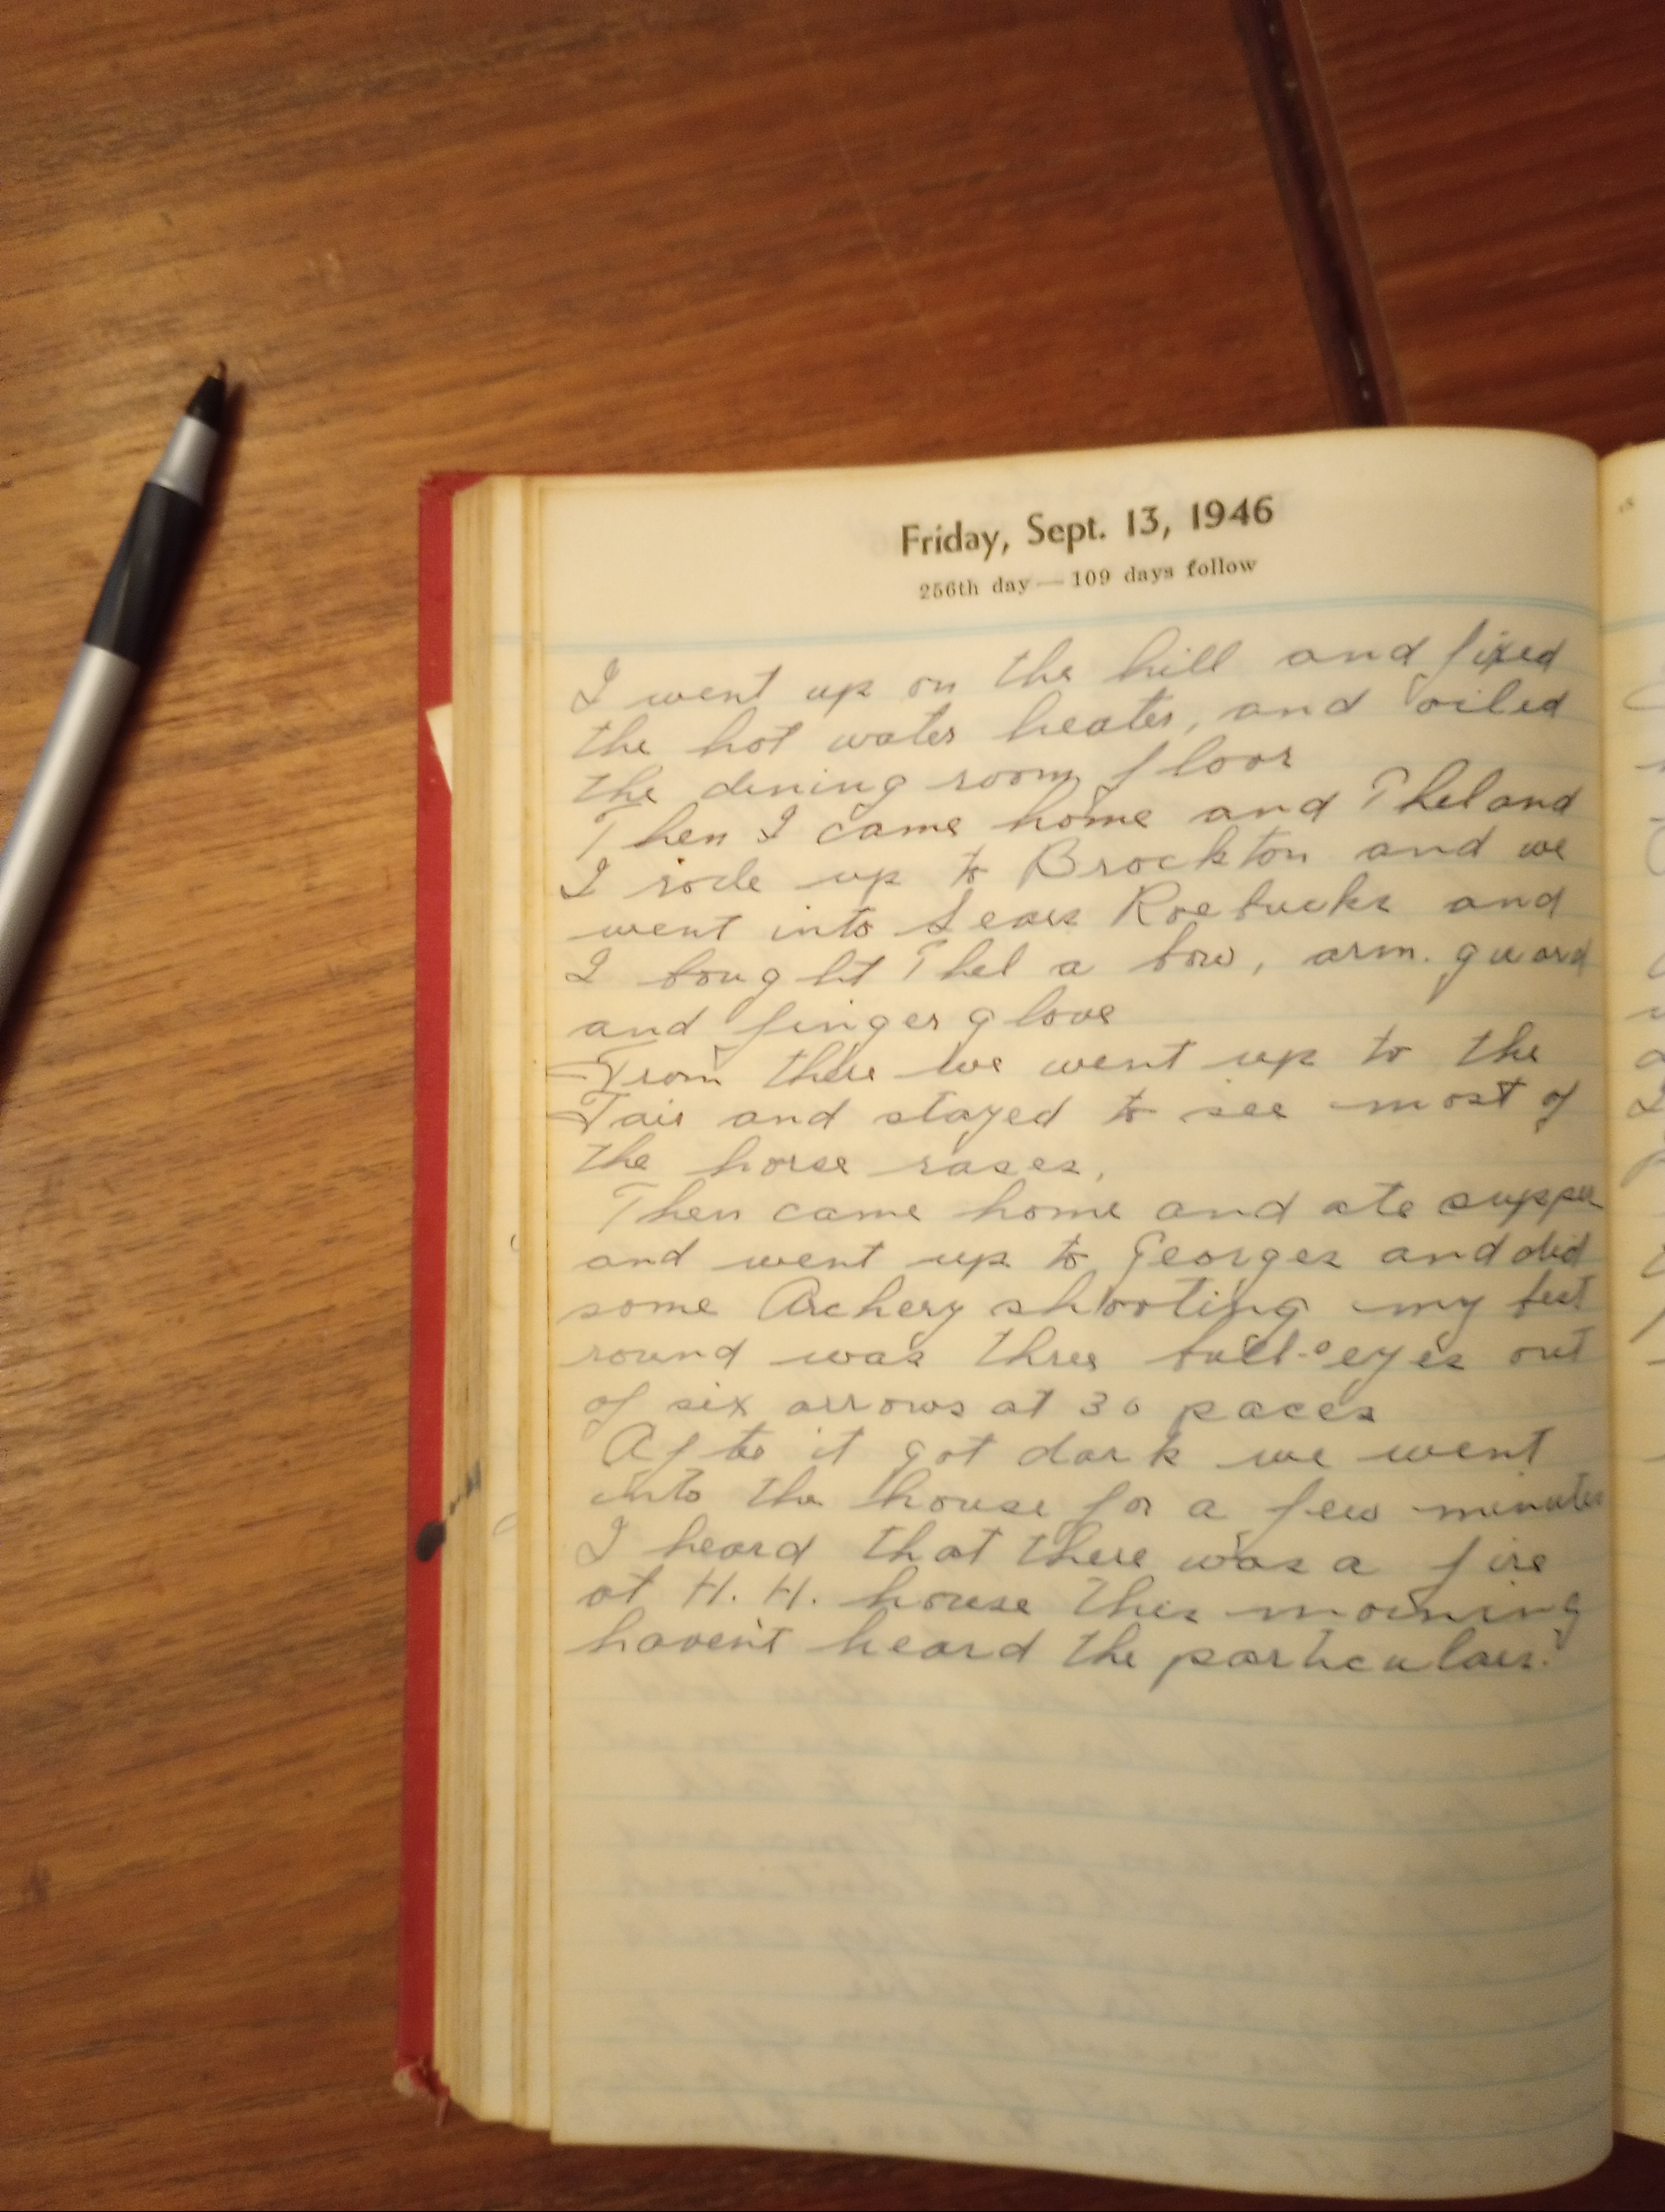 Friday, Sept. 13, 1946
256th day — 109 days follow
I went up on the hill and fixed
the hot water heater, and oiled
the dining room floor
Then I came home and Thel and
I rode up to Brockton and we
went into Sears Roebucks and
I bought Thel a bow, arm. guard
and finger glove
From there we went up to the
Fair and stayed to see most of
the horse rases,
Then came home and ate supper
and went up to Georges and did
some Archery shooting my best
round was three bull-eyes out
of six arrows at 30 paces
After it got dark we went
into the house for a few minutes
I heard that there was a fire
at H. H. house this morning
haven't heard the particulars.